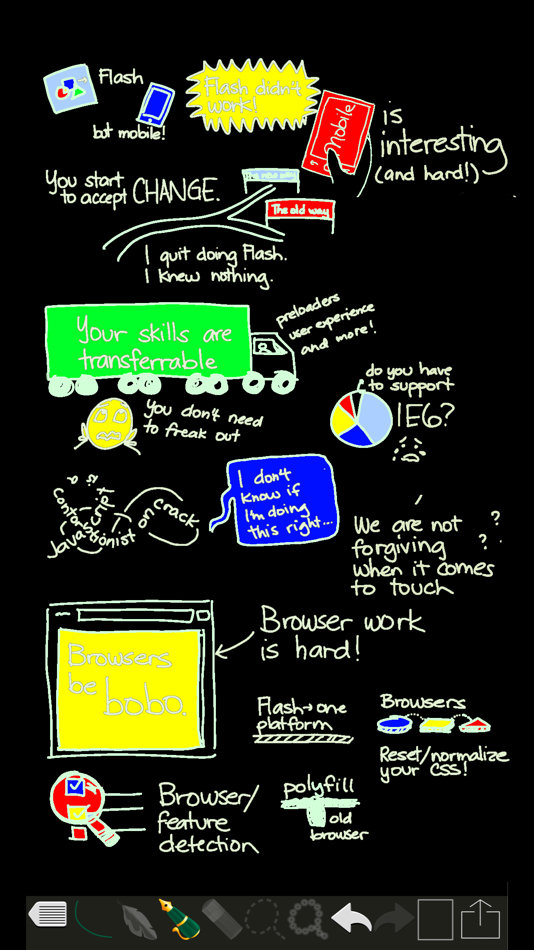 Flash
but mobile!
Flash didn't
work!
Mobile
is
interesting
(and hard!)
You start
to accept CHANGE.
The new way
The old way
I quit doing Flash.
I knew nothing.
Your skills are
transferrable
preloaders
user experience
and more!
You don't need
to freak out
do you have
to support
IE6?
Javascript
is a
contortionist
on crack
I don't
know if
I'm doing
this right...
We are not
forgiving
when it comes
to touch
? ? ?
Browser work
is hard!
Browsers
be bobo.
Flash→one
platform
Browsers
Reset/normalize
your CSS!
Browser/
feature
detection
polyfill
old
browser